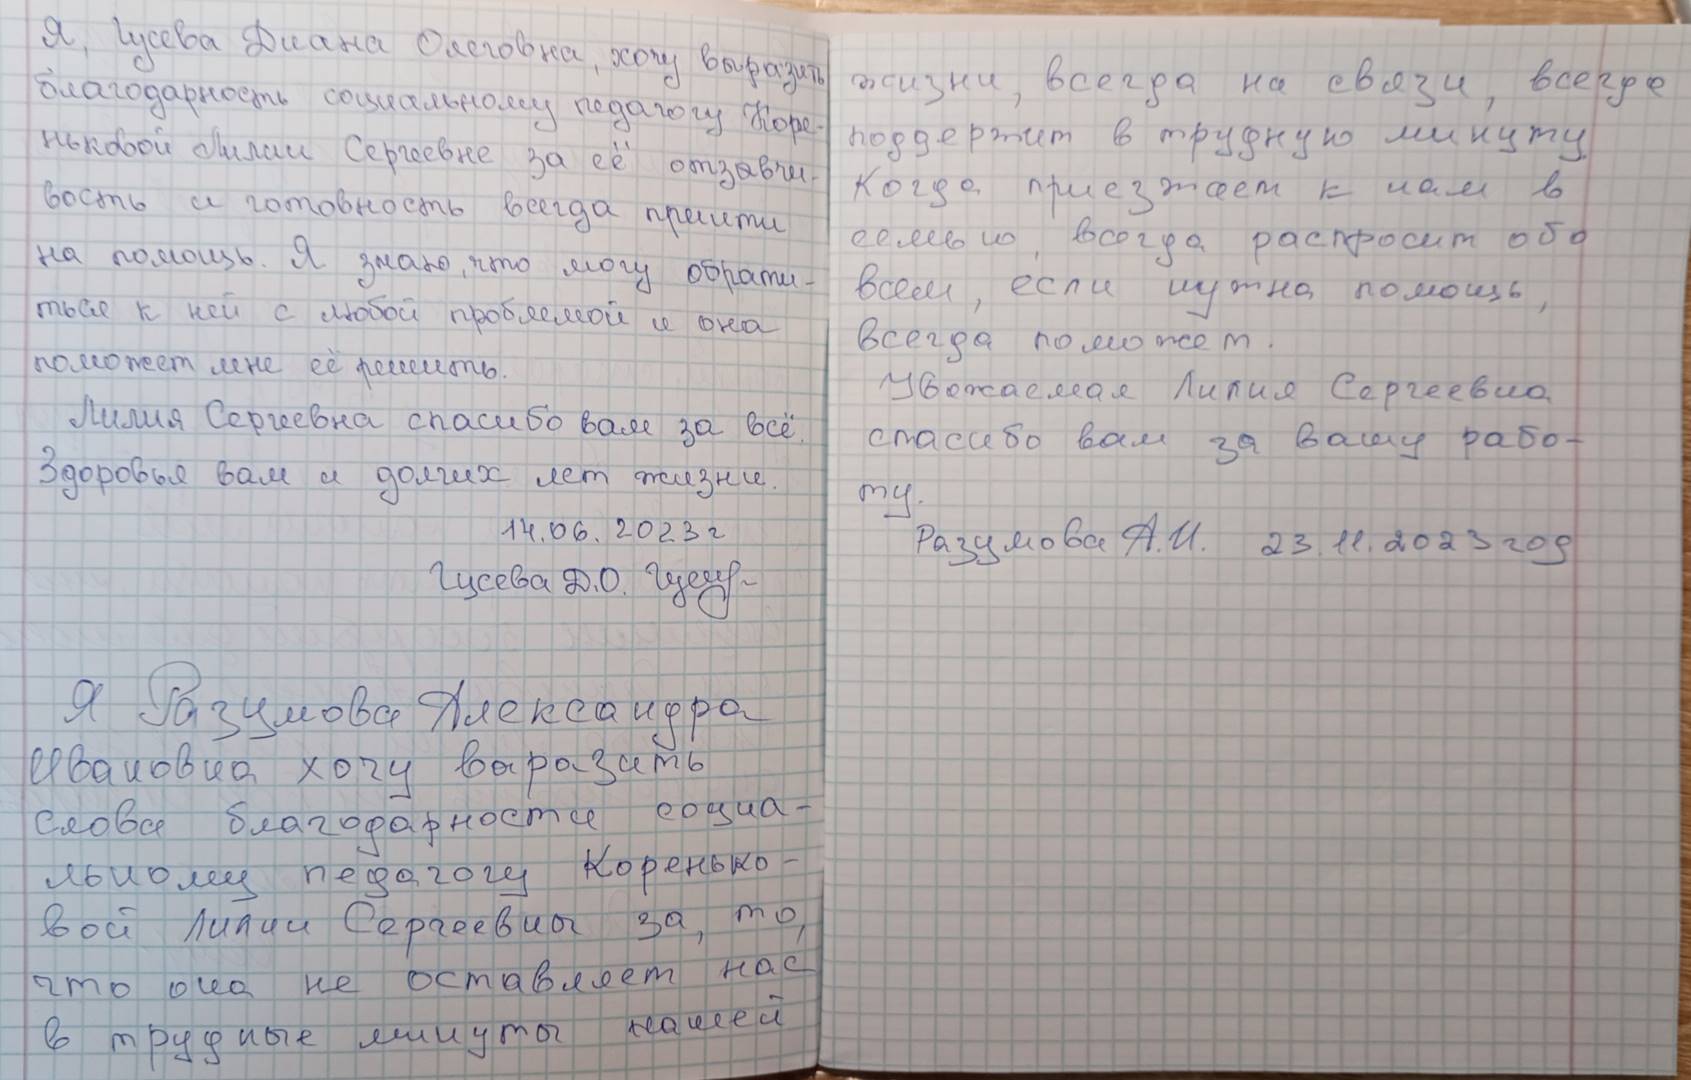 Я, Гусева Диана Олеговна, хочу выразить
благодарность социальному педагогу Коре-
ньковой Лилии Сергеевне за её отзывчи-
вость и готовность всегда прийти
на помощь. Я знаю, что могу обрати-
ться к ней с любой проблемой и она
поможет мне её решить.
Лилия Сергеевна спасибо вам за всё.
Здоровья вам и долгих лет жизни.
14.06.2023г
Гусева Д.О.
Я Разумова Александра
Ивановна хочу выразить
слова благодарности социа-
льному педагогу Коренько-
вой Лилии Сергеевны за, то,
что она не оставляет нас
в трудные минуты нашей
жизни, всегда на связи, всегда
поддержит в трудную минуту.
Когда приезжает к нам в
семью, всегда распросит обо
всем, если нужна помощь,
всегда поможет.
Уважаемая Лилия Сергеевна
спасибо вам за вашу рабо-
ту.
Разумова А.И. 23.11.2023 год